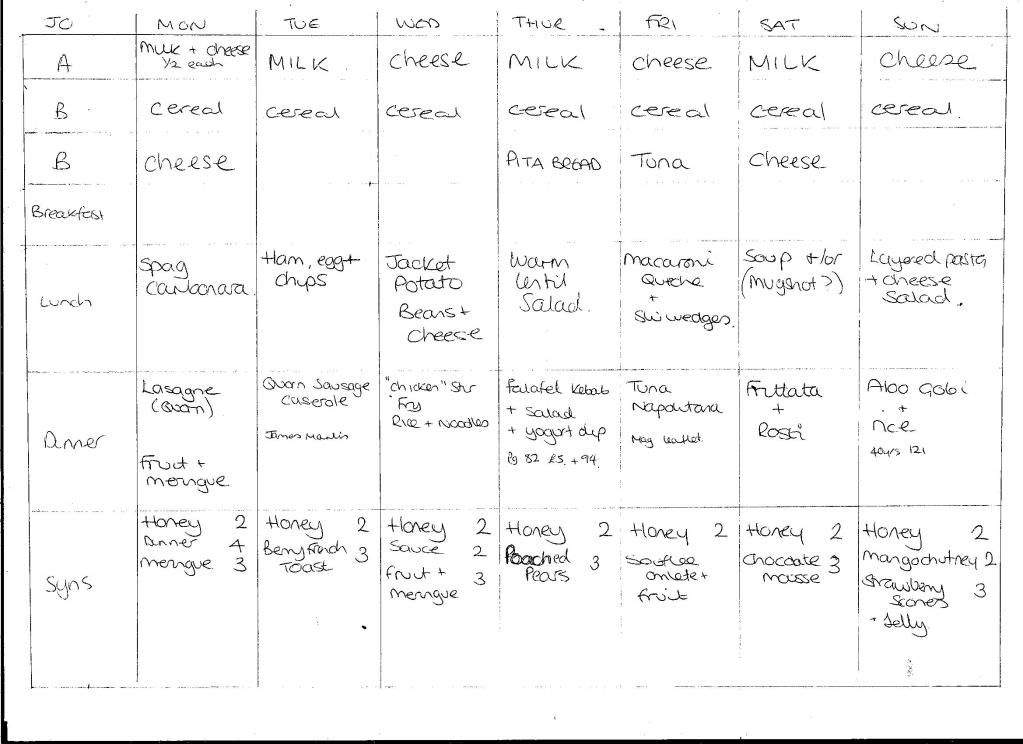 JO MON TUE WED THUR FRI SAT SUN
A Milk + cheese 1/2 each MILK cheese MILK cheese MILK cheese
B cereal cereal cereal cereal cereal cereal cereal
B cheese PITA BREAD Tuna Cheese
Breakfast
Lunch
Spag
Carbonara
Ham, egg +
chips
Jacket
Potato
Beans +
Cheese
Warm
lentil
Salad.
Macaroni
Quiche
+
SW wedges.
Soup +/or
(Mugshot?)
Layered pasta
+ cheese
Salad.
Dinner
Lasagne
(Quorn)
fruit +
meringue
Quorn Sausage
Caserole
James Martin
"chicken" Stir
Fry
Rice + Noodles
Falafel Kebab
+ Salad
+ yogurt dip
Pg 82 £5. +94
Tuna
Napolitana
Mag leaflet.
Frittata
+
Rosti
Aloo Gobi
+
rice
40yrs 121
Syns
Honey 2
Dinner 4
meringue 3
Honey 2
Berry French 3
Toast
Honey 2
Sauce 2
fruit + 3
meringue
Honey 2
Poached 3
Pears
Honey 2
Souflee
omlete +
fruit
Honey 2
Chocoate 3
mousse
Honey 2
Mango chutney 2
Strawberry 3
Scones
+ Jelly